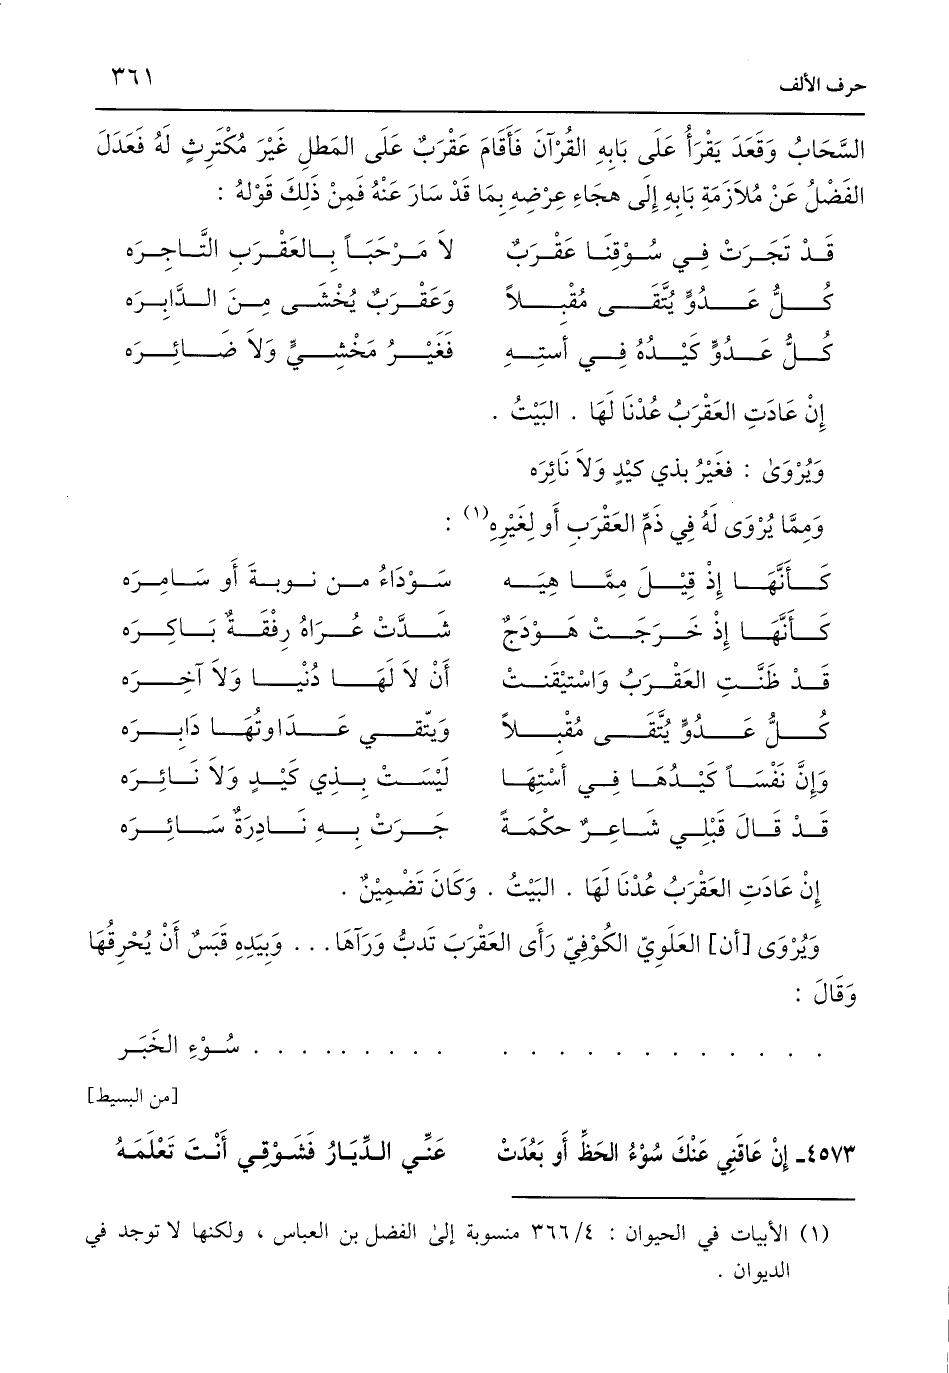 حرف الألف ٣٦١
السَّحَابُ وَقَعَدَ يَقْرَأُ عَلَى بَابِهِ القُرْآنَ فَأَقَامَ عَقْرَبٌ عَلَى المَطلِ غَيْرَ مُكْتَرِثٍ لَهُ فَعَدَلَ
الفَضْلُ عَنْ مُلاَزَمَةِ بَابِهِ إِلَى هجَاءِ عِرْضِهِ بِمَا قَدْ سَارَ عَنْهُ فَمِنْ ذَلِكَ قَوْلهُ :
قَدْ تَجَرَتْ فِي سُوْقِنَا عَقْرَبٌ لاَ مَرْحَبَاً بِالعَقْرَبِ التَّاجِرَه
كُلُّ عَدُوٍّ يُتَّقَى مُقْبِلاً وَعَقْرَبٌ يُخْشَى مِنَ الدَّابِرَه
كُلُّ عَدُوٍّ كَيْدُهُ فِي أستِهِ فَغَيْرُ مَخْشِيٍّ وَلاَ ضَائِرَه
إِنْ عَادَتِ العَقْرَبُ عُدْنَا لَهَا . البَيْتُ .
وَيُرْوَىٰ : فَغَيْرُ بذي كيْدٍ وَلاَ نَائِرَه
وَمِمَّا يُرْوَى لَهُ فِي ذَمِّ العَقْرَبِ أَو لِغَيْرِهِ(١) :
كَأَنَّهَا إِذْ قِيْلَ مِمَّا هِيَه سَوْدَاءُ مِن نوبةَ أَو سَامِرَه
كَأَنَّهَا إِذْ خَرَجَتْ هَوْدَجٌ شَدَّتْ عُرَاهُ رِفْقَةٌ بَاكِرَه
قَدْ ظَنَّتِ العَقْرَبُ وَاسْتيْقَنتْ أَنْ لاَ لَهَا دُنْيَا وَلاَ آخِرَه
كُلُّ عَدُوٍّ يُتَّقَى مُقْبِلاً وَيتّقي عَدَاوتُهَا دَابِرَه
وَإِنَّ نَفْسَاً كَيْدُهَا فِي أسْتِهَا لَيْسَتْ بِذِي كَيْدٍ وَلاَ نَائِرَه
قَدْ قَالَ قَبْلِي شَاعِرٌ حكْمَةً جَرَتْ بِهِ نَادِرَةٌ سَائِرَه
إِنْ عَادَتِ العَقْرَبُ عُدْنَا لَهَا . البَيْتُ . وَكَانَ تَضْمِيْنٌ .
وَيُرْوَى [أن] العَلَوِيّ الكُوْفِيّ رَأَى العَقْرَبَ تَدبُّ وَرَآهَا... وَبِيَدِهِ قَبَسٌ أَنْ يُحْرِقُهَا
وَقَالَ :
. . . . . . . . . . . . . . . . . . . . سُوْءِ الخَبَر
[من البسيط]
٤٥٧٣ـ إِنْ عَاقَنِي عَنْكَ سُوْءُ الحَظِّ أَو بَعُدَتْ عَنِّي الدِّيَارُ فَشَوْقِي أَنْتَ تَعْلَمَهُ
(١) الأبيات في الحيوان : ٤/ ٣٦٦ منسوبة إلىٰ الفضل بن العباس ، ولكنها لا توجد في
الديوان .